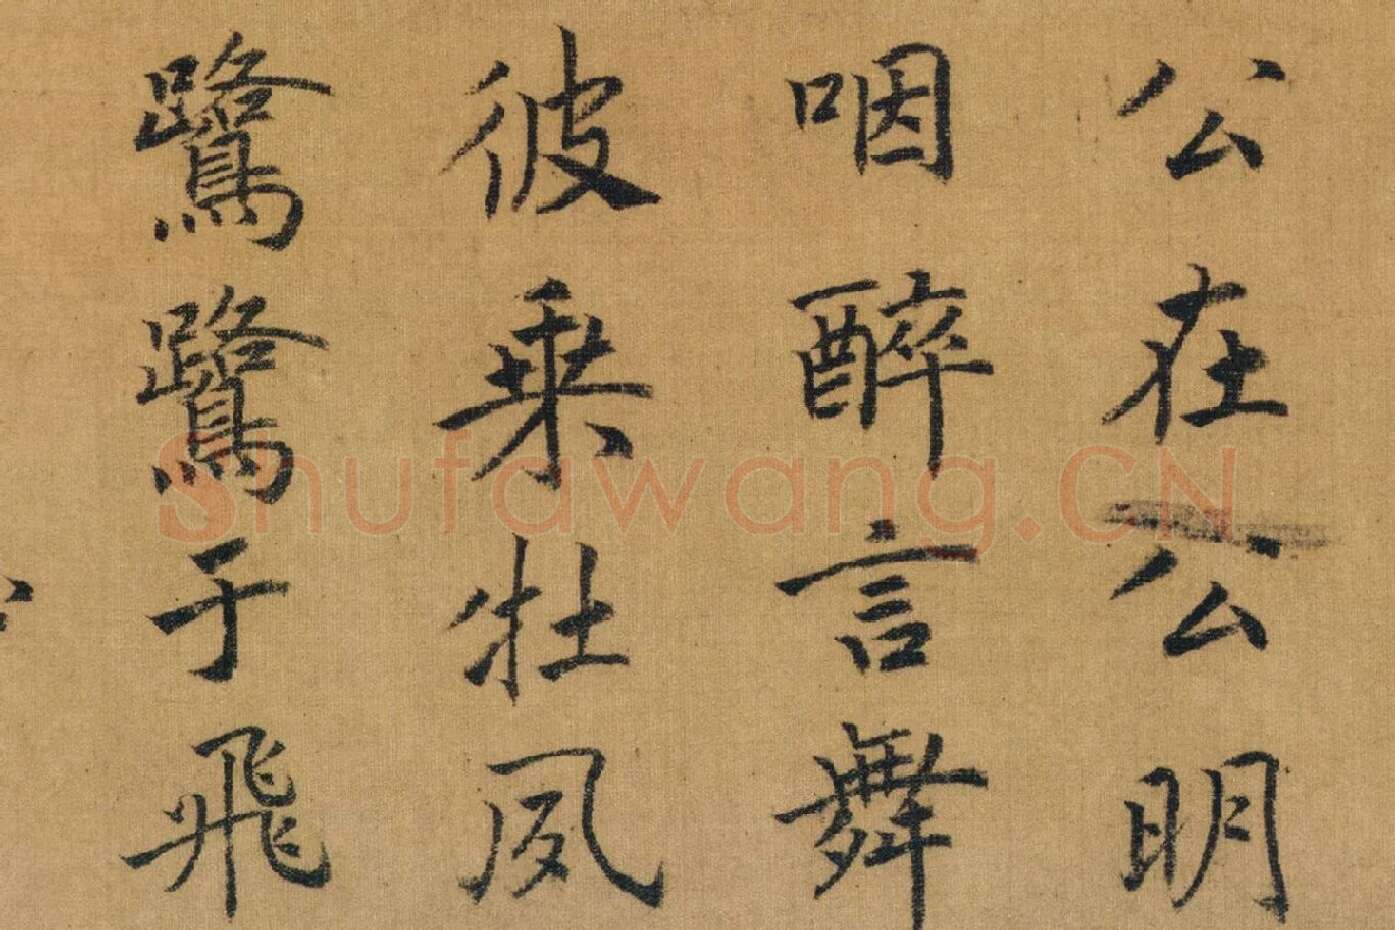 公在公明
咽醉言舞
彼乗牡夙
鷺鷺于飛
Shufawang.CN